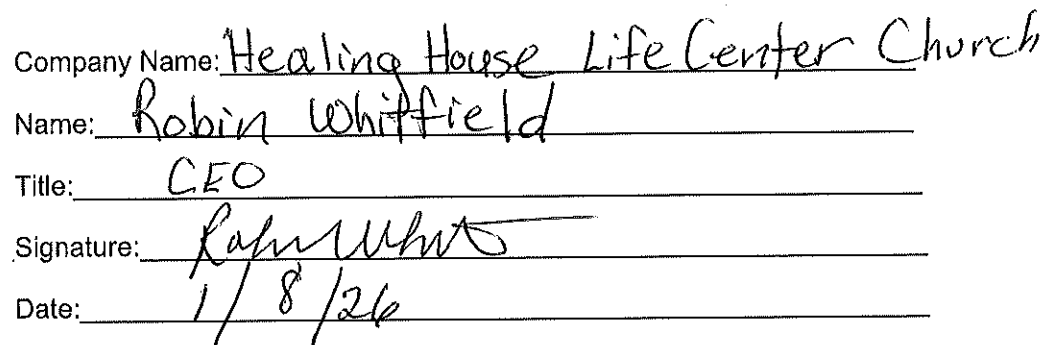 Company Name: Healing House Life Center Church
Name: Robin Whitfield
Title: CEO
Signature:
Date: 1/8/26